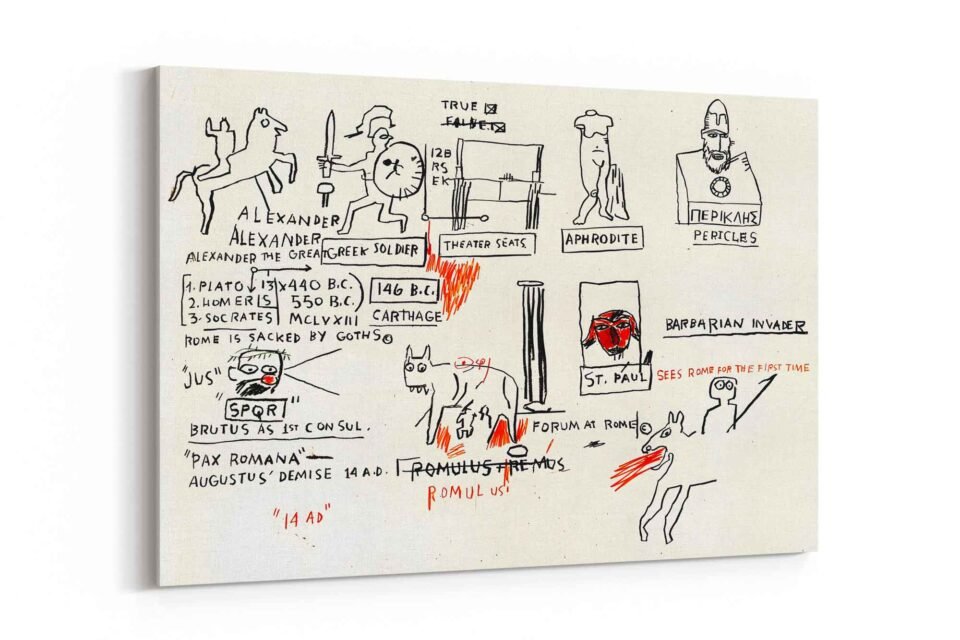 TRUE
FALSE
12B
RS
EK
ALEXANDER
ALEXANDER
ALEXANDER THE GREAT
GREEK SOLDIER
THEATER SEATS
APHRODITE
ΠΕΡΙΚΛΗΣ
PERICLES
1. PLATO 13 x 440 B.C.
2. HOMER IS 550 B.C.
3. SOCRATES MCLVXIII
146 B.C.
CARTHAGE
ROME IS SACKED BY GOTHS©
BARBARIAN INVADER
"JUS"
SPQR
BRUTUS AS 1ST CONSUL.
ST. PAUL
SEES ROME FOR THE FIRST TIME
FORUM AT ROME ©
"PAX ROMANA"—
AUGUSTUS' DEMISE 14 A.D.
ROMULUS + REMUS
ROMULUS
"14 AD"